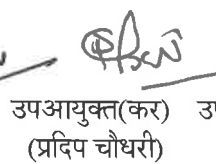 उपआयुक्त(कर) उ
(प्रदिप चौधरी)